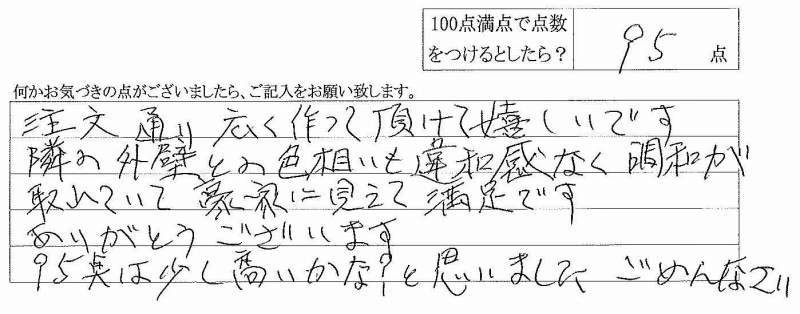 100点満点で点数
をつけるとしたら？ 95 点
何かお気づきの点がございましたら、ご記入をお願い致します。
注文通り 広く作って頂けて嬉しいです
隣の外壁との色相いも違和感なく調和が
取れていて 豪家に見えて 満足です
ありがとう ございます
95点は少し高いかな？と思いました ごめんなさい